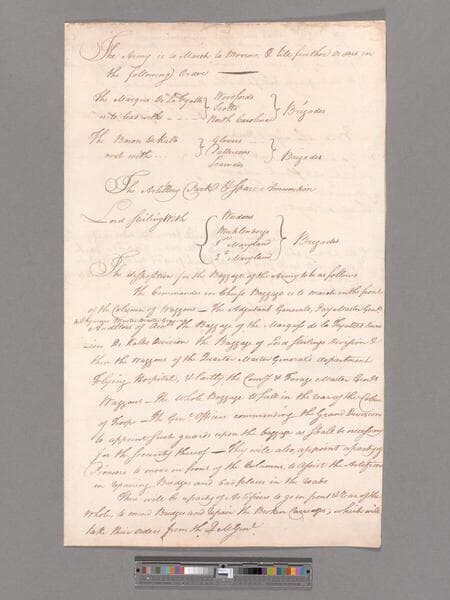 The Army is to March to Morrow & till further Orders in
the following Order
The Marquis De La Fyatte
is to Lead with
Woodfords
Scotts
North Carolina
Brigades
The Baron De Kalb
next with
Glovers
Pattersons
Learneds
Brigades
The Artillery Park & Spare Amunition
Lord Stirling With
Weedens
Muhlenbergs
1st Maryland
2d Maryland
Brigades
The disposition for the Baggage of the Army to be as follows
The Commander in Chiefs Baggage is to march in the front
of the Column of Waggons – The Adjutant Generals, Pay Master Genls
Muster Master
Auditors of The Baggage of the Marquis de la Fyatte's
De Kalbs Division the Baggage of Lord Stirlings Division &
then the Waggons of the Quarter Master General's department
Flying Hospital, & lastly the & Forage Master Genls
Waggons – The whole Baggage to fall in the rear of the Column
of Troops – The Genl Officers commanding the Grand Divisions
to appoint such guards upon the baggage as shall be necessary
for the security thereof – They will also appoint a party of
Pioneers to move in front of the Columns to assist the Artificers
in repairing Bridges and bad places in the roads
There will be a party of Artificers to go in front & rear of the
whole, to mend Bridges and repair the Broken Carriages, which will
take their orders from the Q M Genl